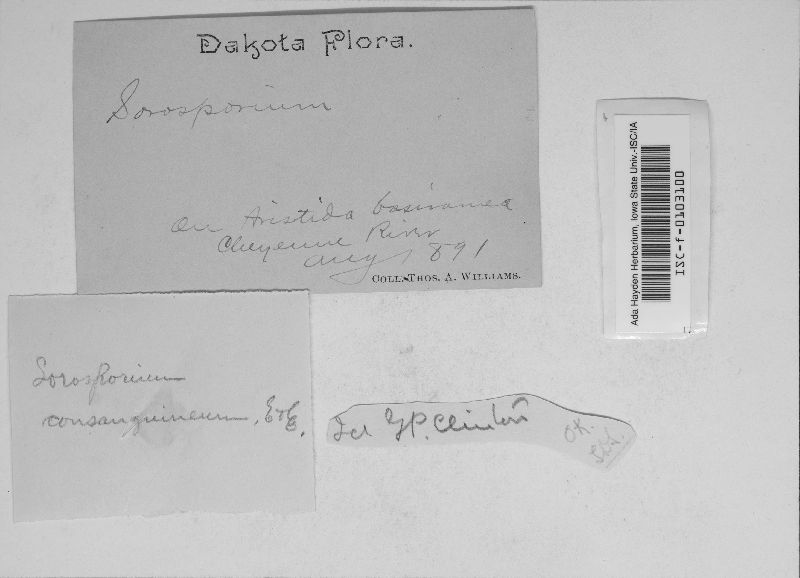 Dakota Flora.
Sorosporium
on Aristida basiramea
Cheyenne River
Aug 1891
COLL. THOS. A. WILLIAMS.
Ada Hayden Herbarium, Iowa State Univ.-ISC/IA
ISC-f-0103100
Sorosporium
consanguineum, E&E.
Det G.P. Clinton
OK.